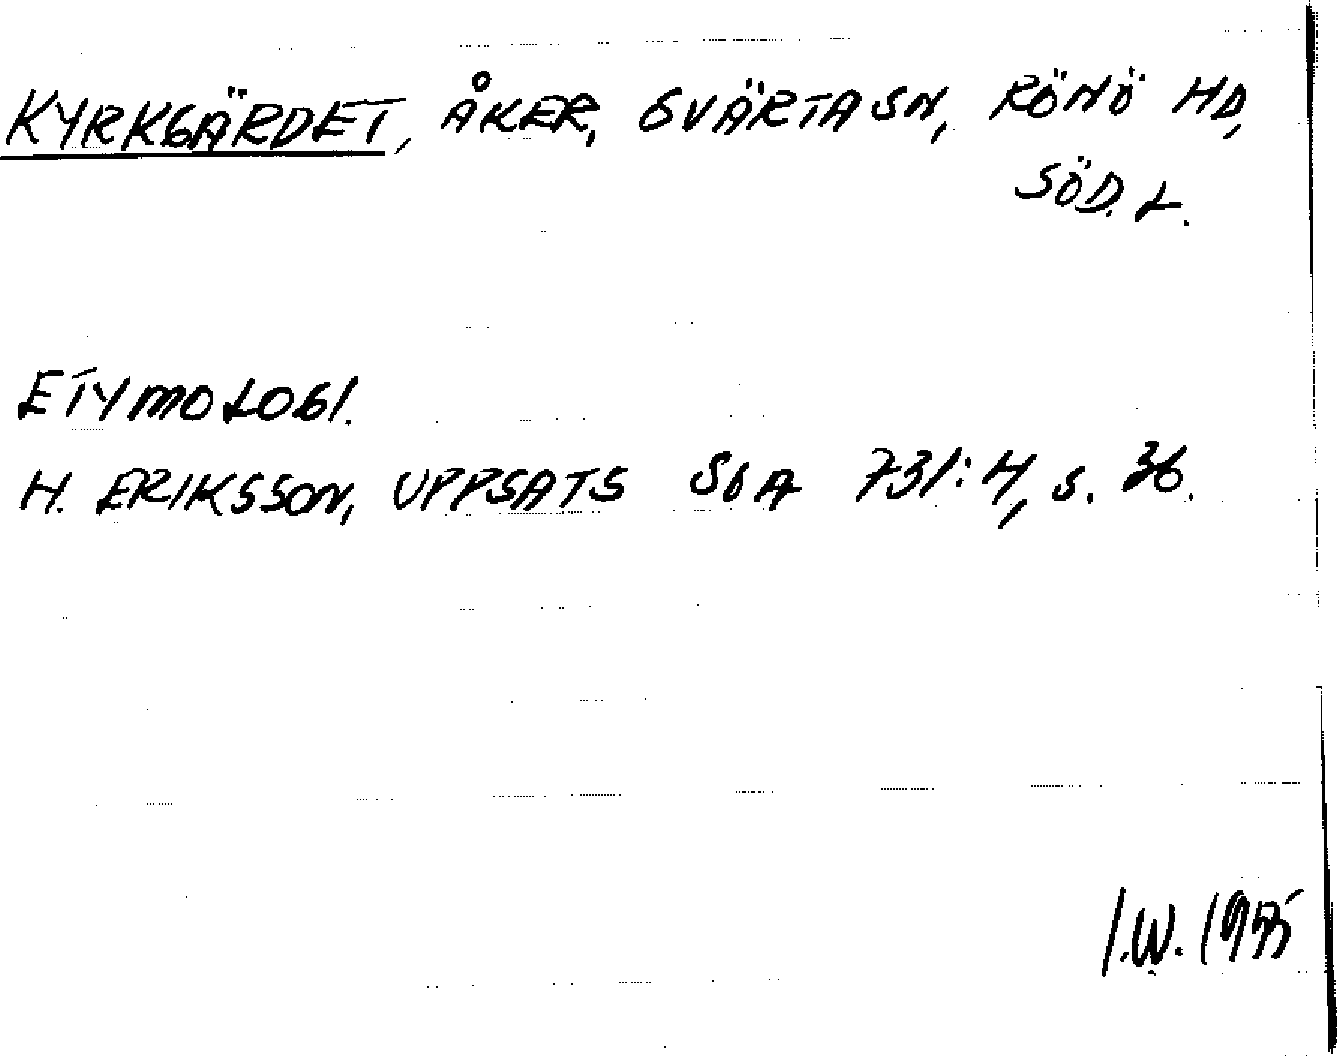 KYRKGÄRDET, ÅKER, SVÄRTA SN, RÖNÖ HD,
SÖD. L.
ETYMOLOGI.
H. ERIKSSON, UPPSATS SOA 731:4, s. 36.
I.W.